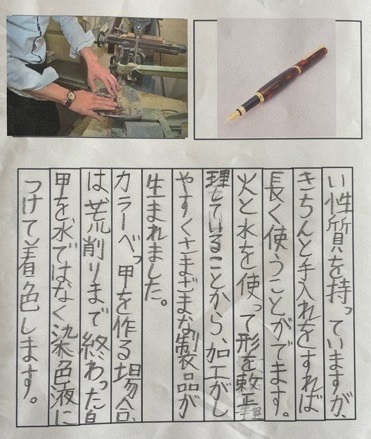 い性質を持っていますが、
きちんと手入れをすれば
長く使うことがでます。
火と水を使って形を整
理していることから、加工がし
やすくさまざまな製品が
生まれました。
カラーべっ甲を作る場合
は荒削りまで終わった
甲を水ではなく染色液に
つけて着色します。